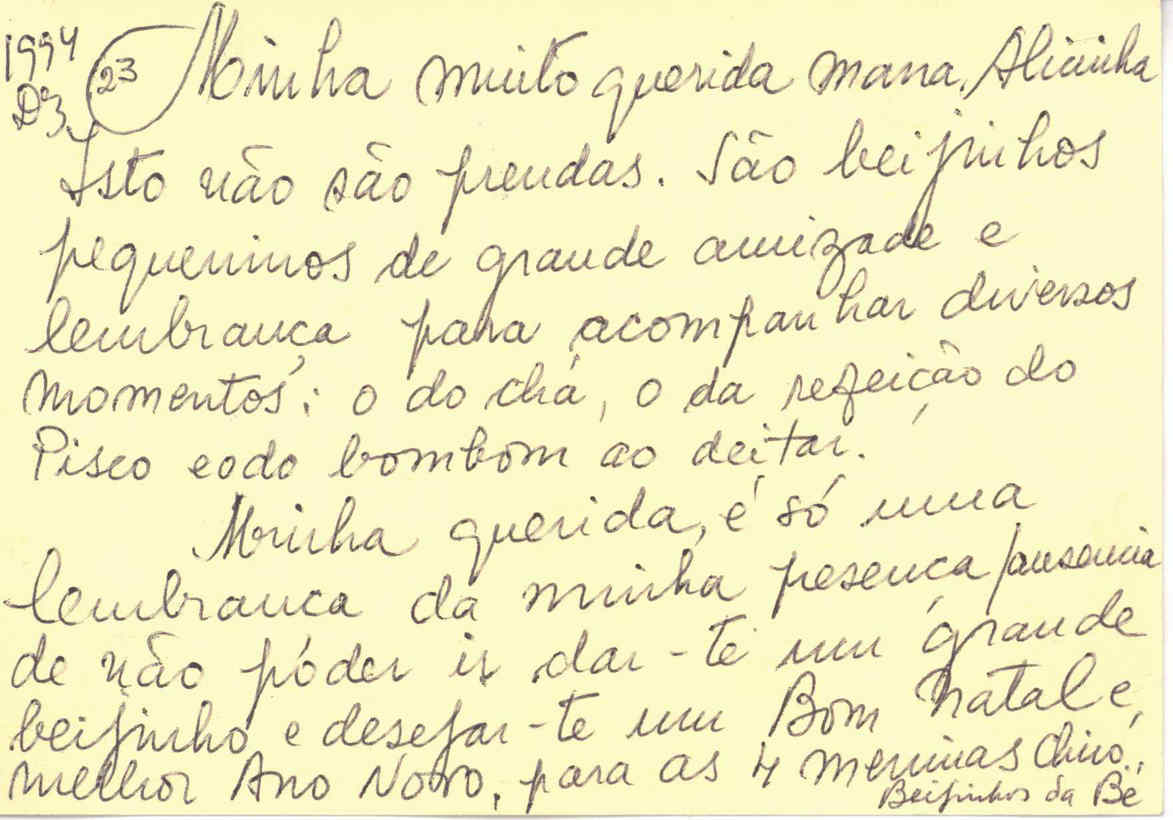 1994
Dz 23 Minha muito querida mana, Alicinha
Isto não são prendas. São beijinhos
pequeninos de grande amizade e
lembrança para acompanhar diversos
momentos: o do chá, o da refeição do
Pisco e o do bombom ao deitar.
Minha querida, é só uma
lembrança da minha presença/ausencia
de não póder ir dar-te um grande
beijinho e desejar-te um Bom Natal e,
melhor Ano Novo, para as 4 meninas
Beijinhos da Bé